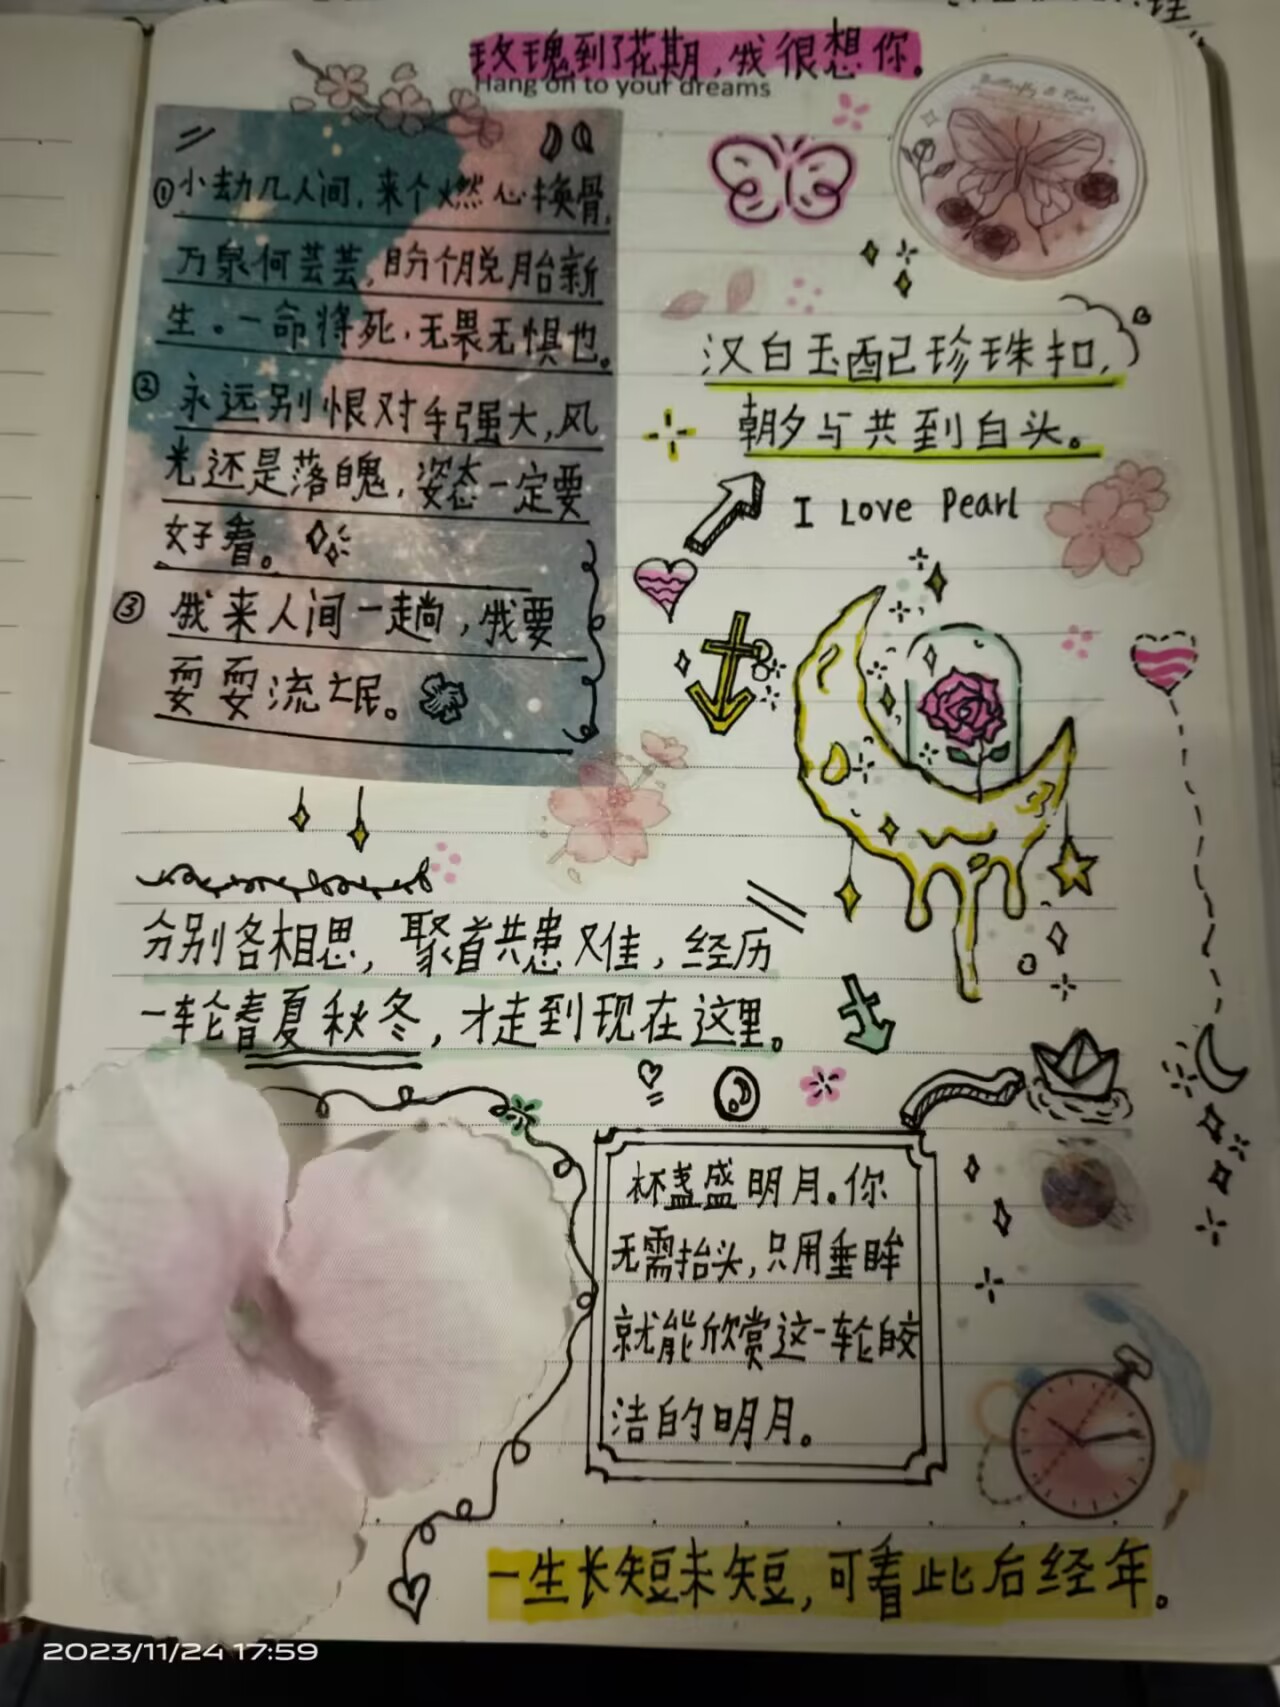 玫瑰到了花期，我很想你。
Hang on to your dreams
①小劫几人间，来个燃心换骨，
万泉何芸芸，盼个脱胎新
生。一命将死，无畏无惧也。
②永远别恨对手强大，风
光还是落魄，姿态一定要
好看。
③我来人间一趟，我要
耍耍流氓。
Butterfly & Rose
汉白玉配己珍珠扣，
朝夕与共到白头。
I Love Pearl
分别各相思，聚首共患难，经历
一轮春夏秋冬，才走到现在这里。
杯盏盛明月。你
无需抬头，只用垂眸
就能欣赏这一轮皎
洁的明月。
一生长短未短，可看此后经年。
2023/11/24 17:59